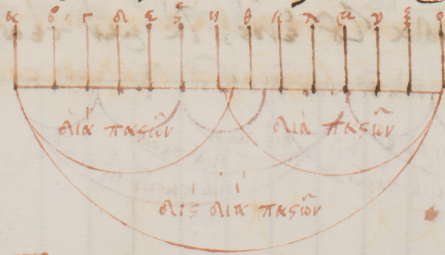 α β γ δ ε ζ η θ κ λ μ ν ξ
διὰ πασῶν διὰ πασῶν
δὶς διὰ πασῶν